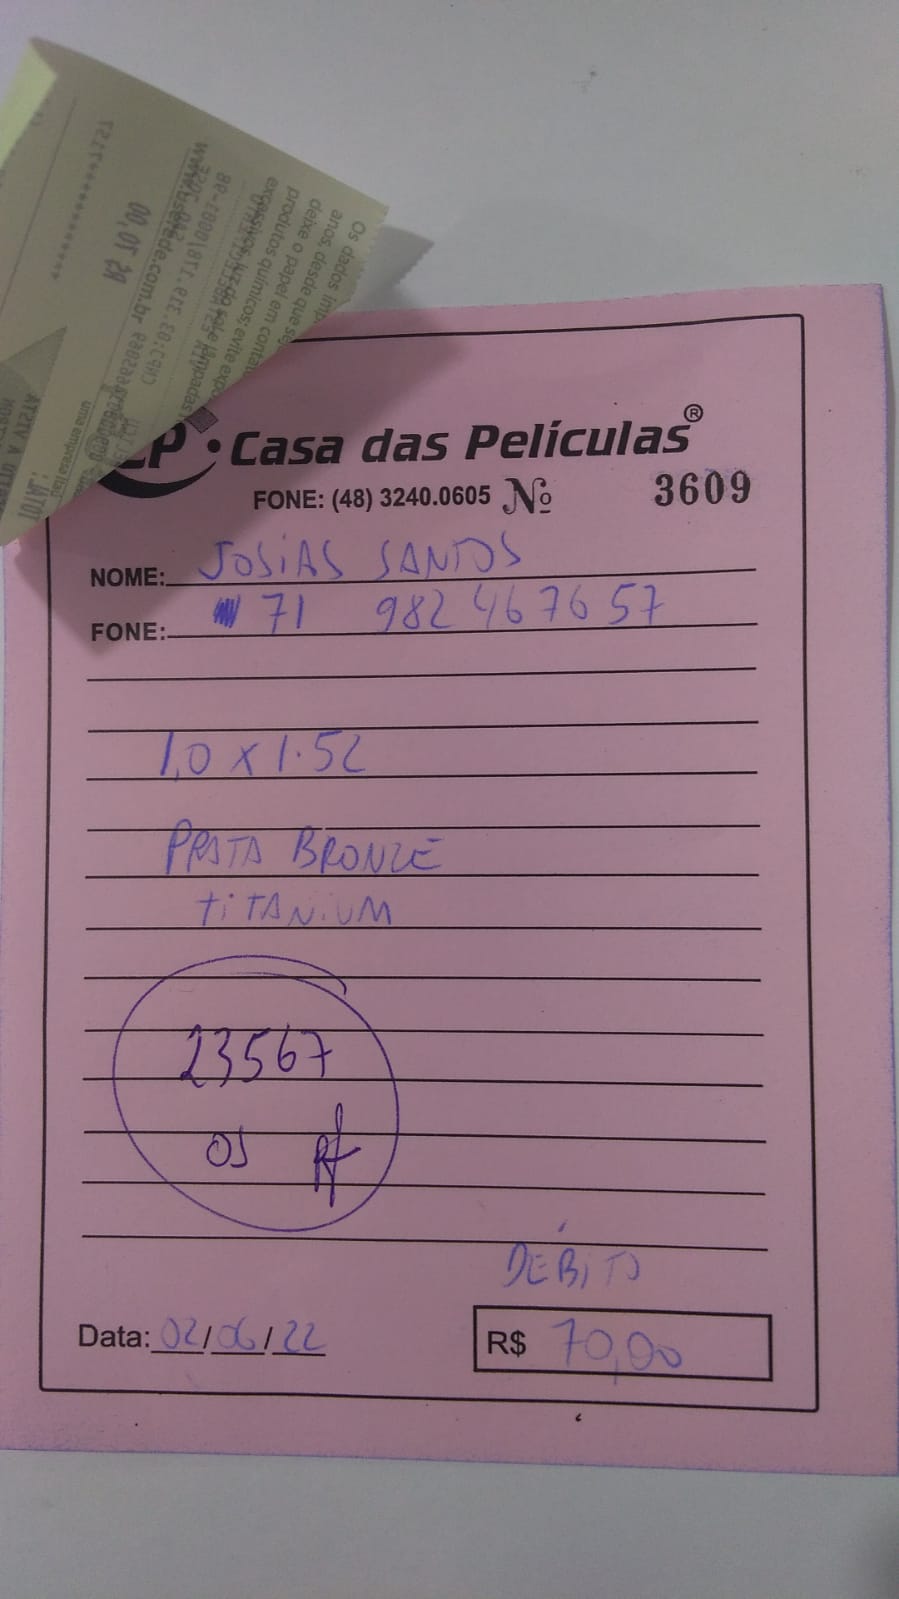 Os dados imp
anos, desde que sej
deixe o papel em contat
produtos químicos; evite expo
R$ 70,00
CP • Casa das Películas®
FONE: (48) 3240.0605 Nº 3609
NOME: JOSIAS SANTOS
FONE: 71 982467657
1,0 x 1.52
PRATA BRONZE
TITANIUM
23567
OS
DÉBITO
Data: 02/06/22 R$ 70,00